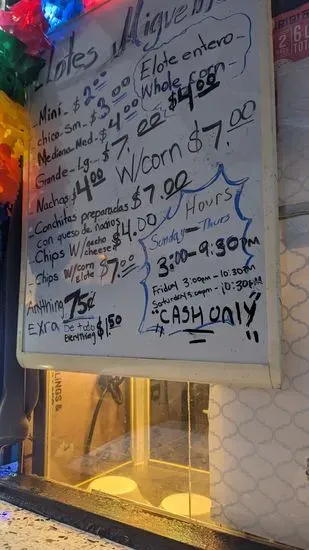 Elotes Miguelin
Elote entero-
Whole corn-
$4.00
-Mini-$2.00
-chico-Sm-$3.00
Mediano Med-$4.00
Grande-Lg-$7.00
-Nachos $4.00 W/corn $7.00
-Conchitas preparadas $7.00
con queso de nachos
-Chips w/nacho cheese $4.00
-Chips w/corn Elote $7.00
Anything Extra 75¢
De todo
Everything $1.50
Hours
Sunday-Thurs
3:00-9:30pm
Friday 3:00pm-10:30pm
"CASH only"